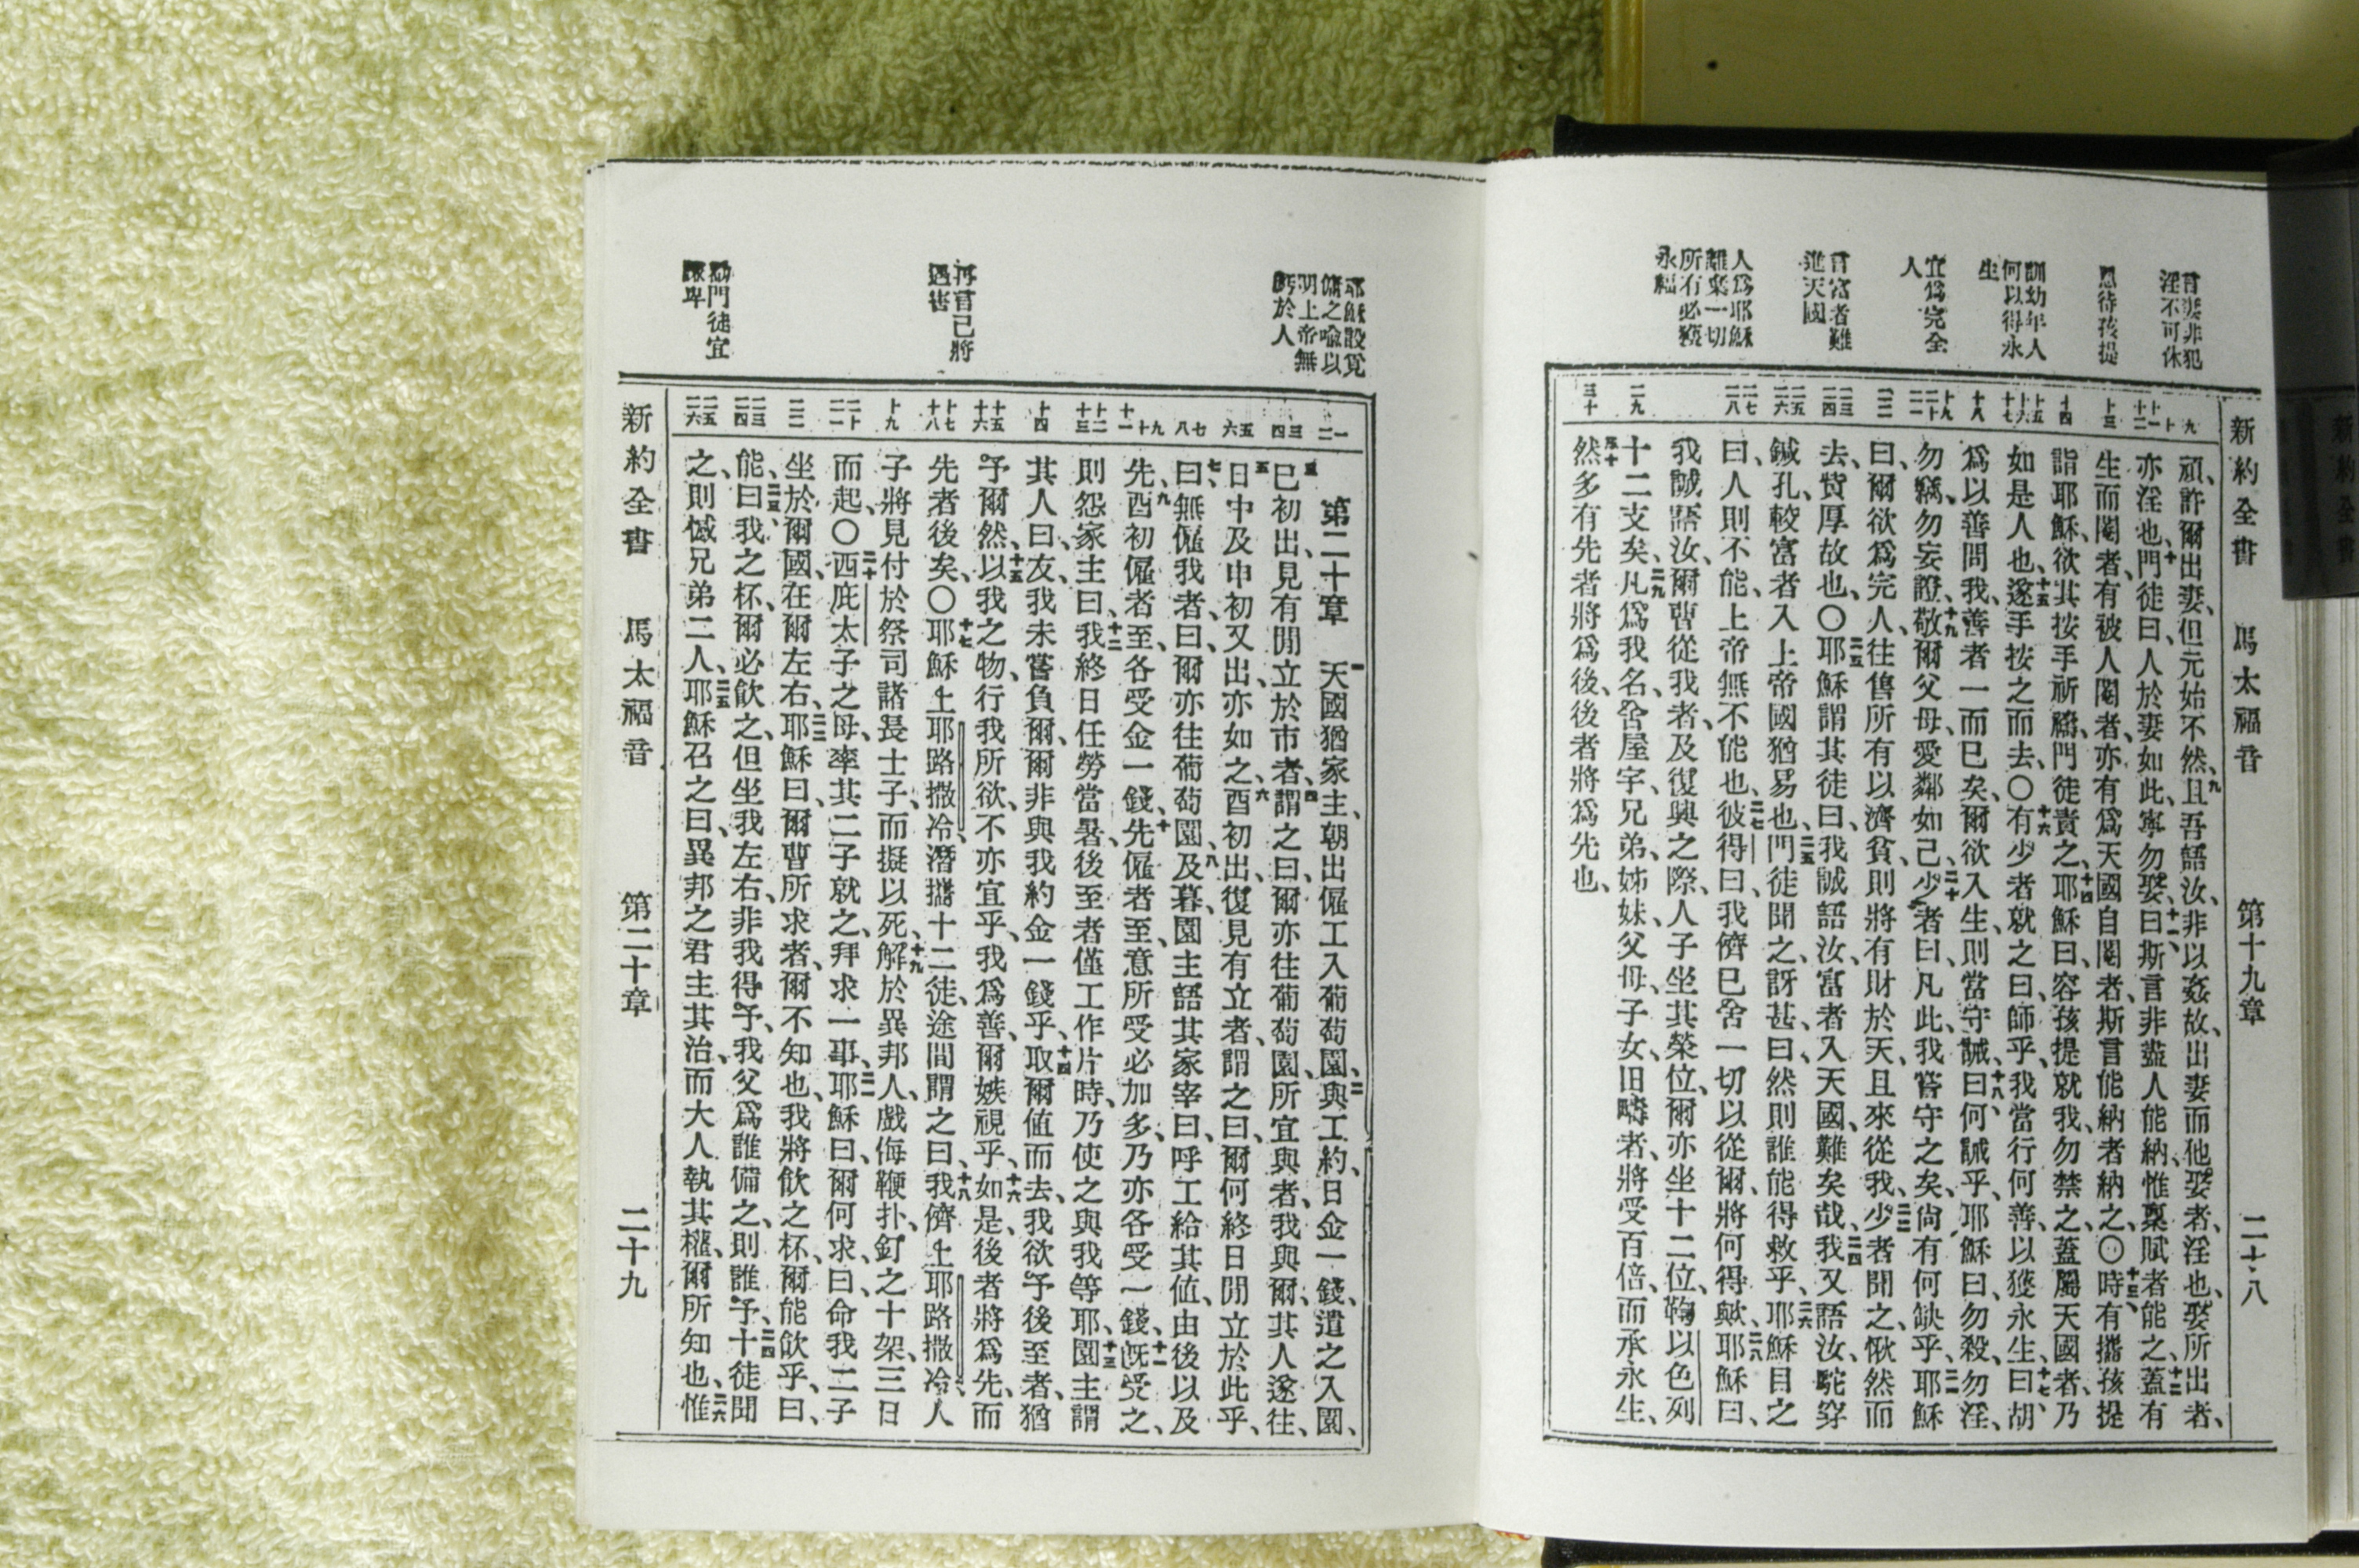 新約全書 馬太福音 第十九章 二十八
言妻非犯
淫不可休
恩待孩提
訓幼年人
何以得永
生
宜爲完全
人
言富者難
進天國
人爲耶穌
離棄一切
所有必獲
永福
九 十
十一 十二
十三
十四
十五 十六 十七
十八
十九 二十 二一
二二
二三 二四
二五 二六
二七 二八
二九
三十
頑、許爾出妻、但元始不然、九且吾語汝、非以姦故、出妻而他娶者、淫也、娶所出者、
亦淫也、十門徒曰、人於妻如此、寧勿娶、十一曰、斯言非盡人能納、惟稟賦者能之、十二蓋有
生而閹者、有被人閹者、亦有爲天國自閹者、斯言能納者納之、〇十三時有攜孩提
詣耶穌、欲其按手祈禱、門徒責之、十四耶穌曰、容孩提就我、勿禁之、蓋屬天國者、乃
如是人也、十五遂手按之而去、〇十六有少者就之曰、師乎、我當行何善、以獲永生、十七曰、胡
爲以善問我、善者一而已矣、爾欲入生、則當守誡、十八曰、何誡乎、耶穌曰、勿殺、勿淫、
勿竊、勿妄證、十九敬爾父母、愛鄰如己、二十少者曰、凡此我嘗守之矣、尙有何缺乎、二一耶穌
曰、爾欲爲完人、往售所有以濟貧、則將有財於天、且來從我、二二少者聞之、愀然而
去、貲厚故也、〇二三耶穌謂其徒曰、我誠語汝、富者入天國、難矣哉、二四我又語汝、駝穿
鍼孔、較富者入上帝國猶易也、二五門徒聞之、訝甚、曰、然則誰能得救乎、二六耶穌目之
曰、人則不能、上帝無不能也、二七彼得曰、我儕已舍一切以從爾、將何得歟、二八耶穌曰、
我誠語汝、爾曹從我者、及復興之際、人子坐其榮位、爾亦坐十二位、鞫以色列
十二支矣、二九凡爲我名、舍屋宇、兄弟、姊妹、父母、子女、田疇者、將受百倍、而承永生、
三十然多有先者將爲後、後者將爲先也、
新約全書 馬太福音 第二十章 二十九
耶穌設覓
傭之喩以
明上帝無
虧於人
再言已將
遇害
勸門徒宜
謙卑
一 二
三 四
五 六
七 八
九 十 十一
十二 十三
十四
十五 十六
十七 十八
十九
二十 二一
二二
二三 二四
二五 二六
第二十章 一天國猶家主、朝出僱工入葡萄園、二與工約、日金一錢、遣之入園、
三巳初出、見有閒立於市者、四謂之曰、爾亦往葡萄園、所宜與者、我與爾、其人遂往、
五日中及申初又出、亦如之、六酉初出、復見有立者、謂之曰、爾何終日閒立於此乎、
七曰、無僱我者、曰、爾亦往葡萄園、八及暮、園主語其家宰曰、呼工給其値、由後以及
先、九酉初僱者至、各受金一錢、十先僱者至、意所受必加多、乃亦各受一錢、十一旣受之、
則怨家主曰、十二我終日任勞當暑、後至者僅工作片時、乃使之與我等耶、十三園主謂
其人曰、友、我未嘗負爾、爾非與我約金一錢乎、十四取爾値而去、我欲予後至者、猶
予爾然、十五以我之物、行我所欲、不亦宜乎、我爲善、爾嫉視乎、十六如是後者將爲先、而
先者後矣、〇十七耶穌上耶路撒冷、潛攜十二徒、途間謂之曰、十八我儕上耶路撒冷、人
子將見付於祭司諸長士子、而擬以死、十九解於異邦人、戲侮鞭扑、釘之十架、三日
而起、〇二十西庇太子之母、率其二子就之、拜求一事、二一耶穌曰、爾何求、曰、命我二子
坐於爾國、在爾左右、二二耶穌曰、爾曹所求者、爾不知也、我將飲之杯、爾能飲乎、曰、
能、二三曰、我之杯、爾必飲之、但坐我左右、非我得予、我父爲誰備之、則誰予、二四十徒聞
之、則憾兄弟二人、二五耶穌召之曰、異邦之君主其治、而大人執其權、爾所知也、二六惟